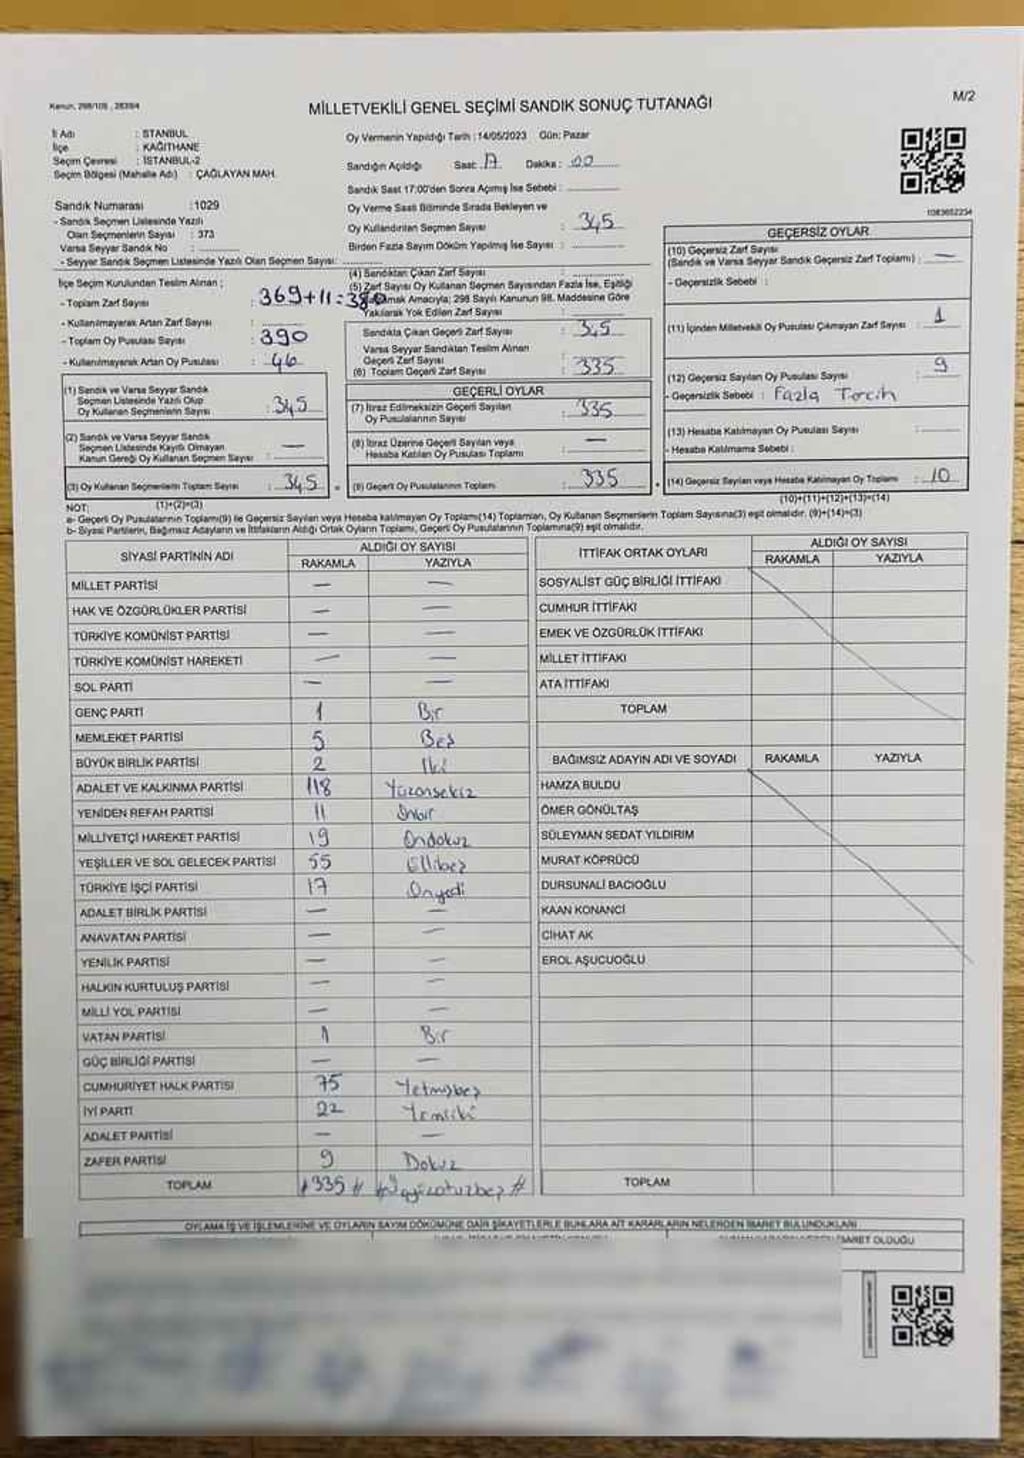 Kanun, 298/105 , 2839/4
MİLLETVEKİLİ GENEL SEÇİMİ SANDIK SONUÇ TUTANAĞI
M/2
İl Adı : STANBUL
İlçe : KAĞITHANE
Seçim Çevresi : İSTANBUL-2
Seçim Bölgesi (Mahalle Adı) : ÇAĞLAYAN MAH.
Sandık Numarası :1029
- Sandık Seçmen Listesinde Yazılı
Olan Seçmenlerin Sayısı : 373
Varsa Seyyar Sandık No :
- Seyyar Sandık Seçmen Listesinde Yazılı Olan Seçmen Sayısı:
Oy Vermenin Yapıldığı Tarih :14/05/2023 Gün: Pazar
Sandığın Açıldığı Saat: 17 Dakika : 00
Sandık Saat 17:00'den Sonra Açımış İse Sebebi :
Oy Verme Saati Bitiminde Sırada Bekleyen ve
Oy Kullandırılan Seçmen Sayısı : 345
Birden Fazla Sayım Döküm Yapılmış İse Sayısı :
1083652234
İlçe Seçim Kurulundan Teslim Alınan ;
- Toplam Zarf Sayısı : 369+11=380
- Kullanılmayarak Artan Zarf Sayısı :
- Toplam Oy Pusulası Sayısı : 390
- Kullanılmayarak Artan Oy Pusulası : 46
(1) Sandık ve Varsa Seyyar Sandık
Seçmen Listesinde Yazılı Olup
Oy Kullanan Seçmenlerin Sayısı : 345
(2) Sandık ve Varsa Seyyar Sandık
Seçmen Listesinde Kayıtlı Olmayan
Kanun Gereği Oy Kullanan Seçmen Sayısı : —
(3) Oy Kullanan Seçmenlerin Toplam Sayısı : 345
(1)+(2)=(3)
(4) Sandıktan Çıkan Zarf Sayısı :
(5) Zarf Sayısı Oy Kullanan Seçmen Sayısından Fazla İse, Eşitliği
Amacıyla; 298 Sayılı Kanunun 98. Maddesine Göre
Yakılarak Yok Edilen Zarf Sayısı :
Sandıkta Çıkan Geçerli Zarf Sayısı : 335
Varsa Seyyar Sandıktan Teslim Alınan
Geçerli Zarf Sayısı
(6) Toplam Geçerli Zarf Sayısı : 335
GEÇERLİ OYLAR
(7) İtiraz Edilmeksizin Geçerli Sayılan
Oy Pusulasının Sayısı : 335
(8) İtiraz Üzerine Geçerli Sayılan veya
Hesaba Katılan Oy Pusulası Toplamı : —
(9) Geçerli Oy Pusulalarının Toplamı : 335
GEÇERSİZ OYLAR
(10) Geçersiz Zarf Sayısı
(Sandık ve Varsa Seyyar Sandık Geçersiz Zarf Toplamı) : —
- Geçersizlik Sebebi :
(11) İçinden Milletvekili Oy Pusulası Çıkmayan Zarf Sayısı : 1
(12) Geçersiz Sayılan Oy Pusulası Sayısı : 9
- Geçersizlik Sebebi : Fazla Tercih
(13) Hesaba Katılmayan Oy Pusulası Sayısı :
- Hesaba Katılmama Sebebi :
(14) Geçersiz Sayılan veya Hesaba Katılmayan Oy Toplamı : 10
(10)+(11)+(12)+(13)=(14)
NOT:
a- Geçerli Oy Pusulalarının Toplamı(9) ile Geçersiz Sayılan veya Hesaba katılmayan Oy Toplam(14) Toplamları, Oy Kullanan Seçmenlerin Toplam Sayısına(3) eşit olmalıdır. (9)+(14)=(3)
b- Siyasi Partilerin, Bağımsız Adayların ve İttifakların Aldığı Ortak Oyların Toplamı, Geçerli Oy Pusulalarının Toplamına(9) eşit olmalıdır.
SİYASİ PARTİNİN ADI ALDIĞI OY SAYISI
RAKAMLA YAZIYLA
MİLLET PARTİSİ — —
HAK VE ÖZGÜRLÜKLER PARTİSİ — —
TÜRKİYE KOMÜNİST PARTİSİ — —
TÜRKİYE KOMÜNİST HAREKETİ — —
SOL PARTİ — —
GENÇ PARTİ 1 Bir
MEMLEKET PARTİSİ 5 Beş
BÜYÜK BİRLİK PARTİSİ 2 İki
ADALET VE KALKINMA PARTİSİ 118 Yüzonsekiz
YENİDEN REFAH PARTİSİ 11 Onbir
MİLLİYETÇİ HAREKET PARTİSİ 19 Ondokuz
YEŞİLLER VE SOL GELECEK PARTİSİ 55 Ellibeş
TÜRKİYE İŞÇİ PARTİSİ 17 Onyedi
ADALET BİRLİK PARTİSİ — —
ANAVATAN PARTİSİ — —
YENİLİK PARTİSİ — —
HALKIN KURTULUŞ PARTİSİ — —
MİLLİ YOL PARTİSİ — —
VATAN PARTİSİ 1 Bir
GÜÇ BİRLİĞİ PARTİSİ — —
CUMHURİYET HALK PARTİSİ 75 Yetmişbeş
İYİ PARTİ 22 Yirmiiki
ADALET PARTİSİ — —
ZAFER PARTİSİ 9 Dokuz
TOPLAM #335# #Üçyüzotuzbeş#
İTTİFAK ORTAK OYLARI ALDIĞI OY SAYISI
RAKAMLA YAZIYLA
SOSYALİST GÜÇ BİRLİĞİ İTTİFAKI
CUMHUR İTTİFAKI
EMEK VE ÖZGÜRLÜK İTTİFAKI
MİLLET İTTİFAKI
ATA İTTİFAKI
TOPLAM
BAĞIMSIZ ADAYIN ADI VE SOYADI RAKAMLA YAZIYLA
HAMZA BULDU
ÖMER GÖNÜLTAŞ
SÜLEYMAN SEDAT YILDIRIM
MURAT KÖPRÜCÜ
DURSUNALİ BACIOĞLU
KAAN KONANCİ
CİHAT AK
EROL AŞUCUOĞLU
TOPLAM
OYLAMA İŞ VE İŞLEMLERİNE VE OYLARIN SAYIM DÖKÜMÜNE DAİR ŞİKAYETLERLE BUNLARA AİT KARARLARIN NELERDEN İBARET BULUNDUKLARI
İBARET OLDUĞU